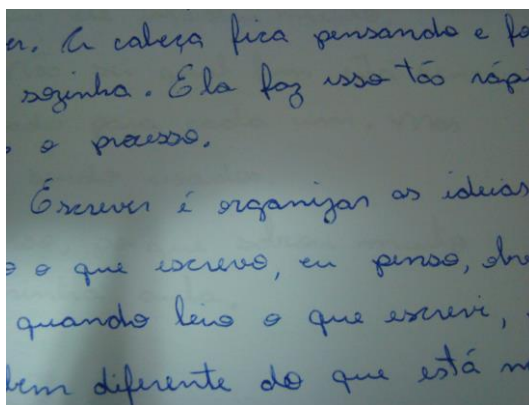 er. A cabeça fica pensando e fa
sozinha. Ela faz isso tão rápi
o processo.
Escrever é organizar as ideias
o que escrevo, eu penso, obre
quando leio o que escrevi,
bem diferente do que está n